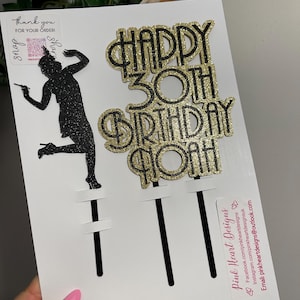 thank you
FOR YOUR ORDER!
Snap
HAPPY
30TH
BIRTHDAY
NOAH
Pink Heart Designs
Email: pinkheartdesigns@outlook.com